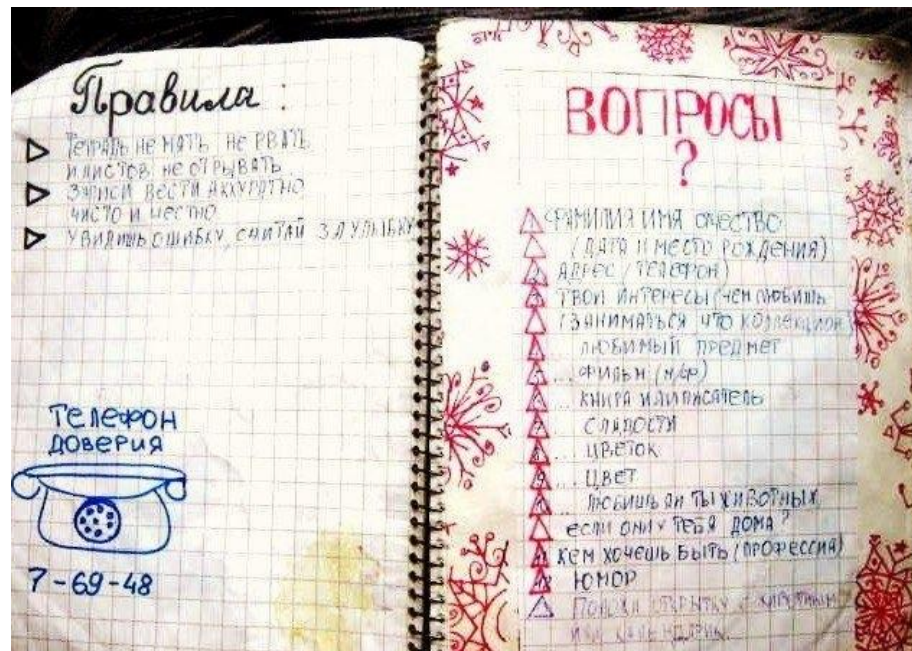 Правила:
ТЕТРАДЬ НЕ МЯТЬ, НЕ РВАТЬ
И ЛИСТОВ НЕ ОТРЫВАТЬ
ЗАПИСИ ВЕСТИ АККУРАТНО
ЧИСТО И ЧЕСТНО
УВИДИШЬ ОШИБКУ, СЧИТАЙ ЗА УЛЫБКУ
ТЕЛЕФОН
ДОВЕРИЯ
7-69-48
ВОПРОСЫ
?
1 ФАМИЛИЯ ИМЯ ОЧЕСТВО
(ДАТА И МЕСТО РОЖДЕНИЯ)
2 АДРЕС (ТЕЛЕФОН)
3 ТВОИ ИНТЕРЕСЫ (ЧЕМ ЛЮБИШЬ
ЗАНИМАТЬСЯ ЧТО КОЛЛЕКЦИОН)
ЛЮБИМЫЙ ПРЕДМЕТ
... ФИЛЬМ (М/Ф)
... КНИГА ИЛИ ПИСАТЕЛЬ
7 СЛАДОСТИ
... ЦВЕТОК
9 ... ЦВЕТ
ЛЮБИШЬ ЛИ ТЫ ЖИВОТНЫХ,
ЕСЛИ ОНИ У ТЕБЯ ДОМА?
11 КЕМ ХОЧЕШЬ БЫТЬ (ПРОФЕССИЯ)
12 ЮМОР
ОТКРЫТКУ С ЖИВОТНЫМ
ИЛИ КАЛЕНДАРИК.